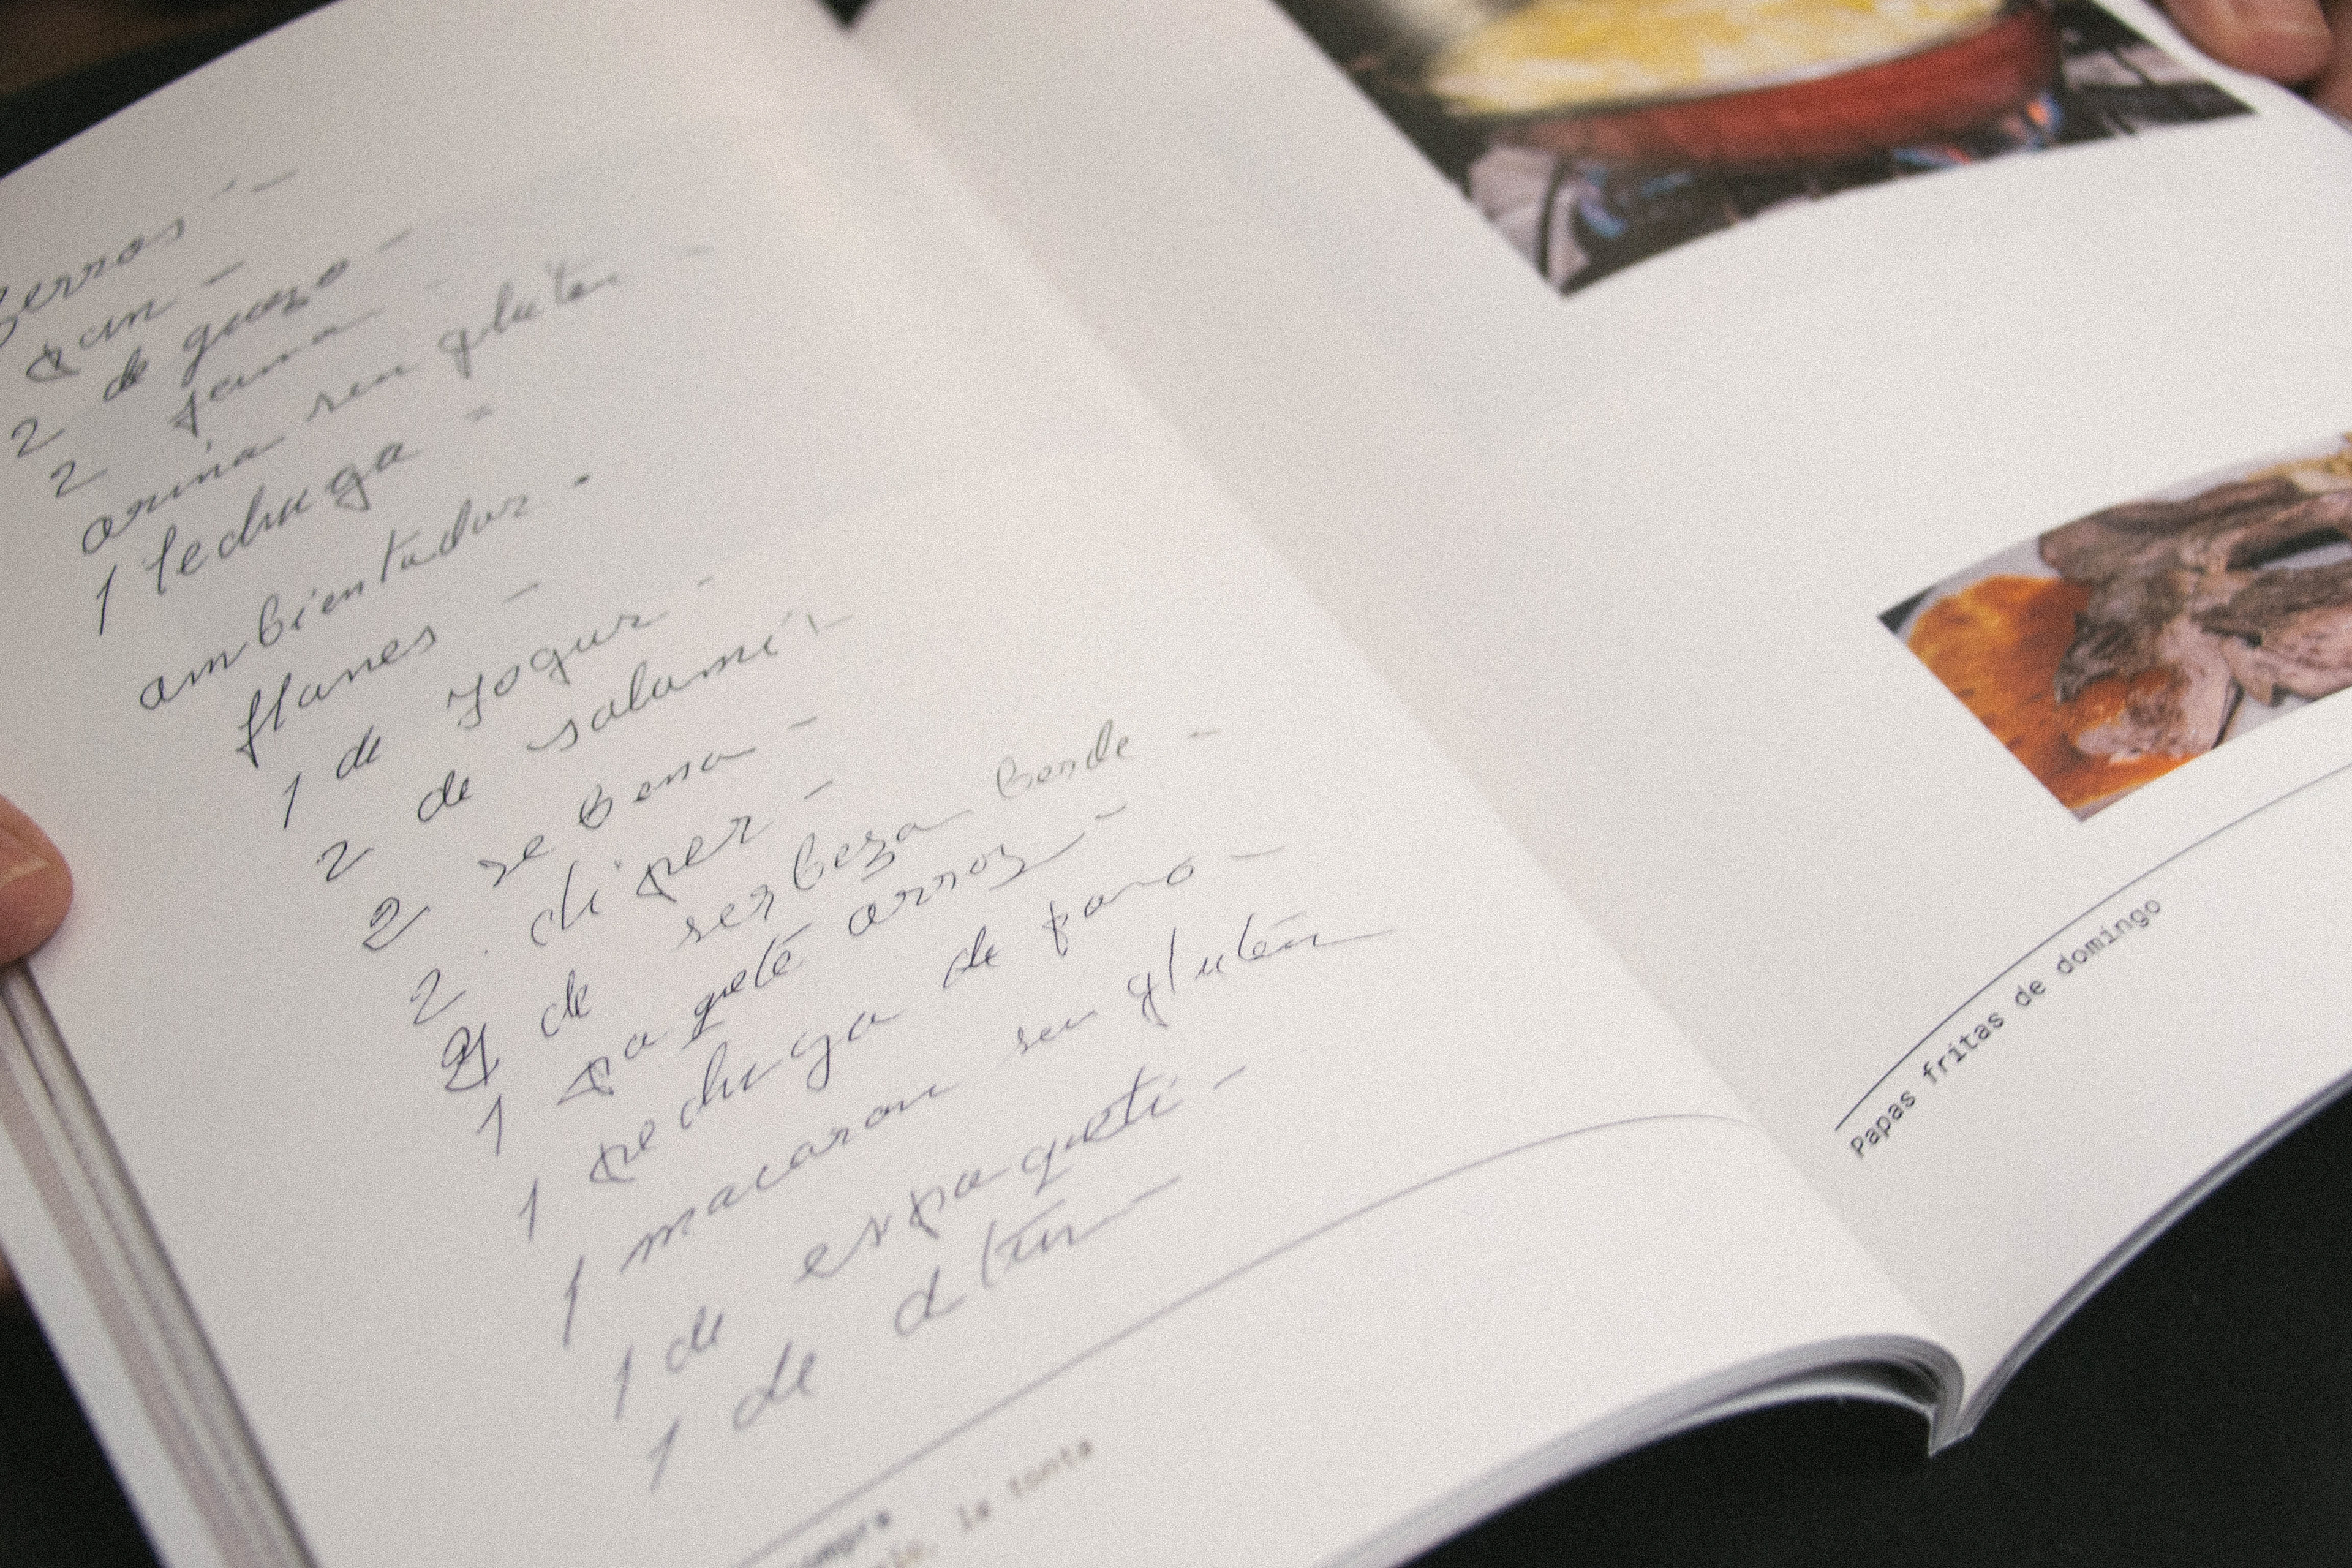 pan -
2 de quezo -
2 jamon -
arina sin gluten -
1 lechuga -
ambientador -
flanes -
1 de yogur -
2 de salami -
2 se bena -
2 chiper -
2 de serbeza berde -
1 paquete arroz -
1 pechuga de pavo -
1 macaron sin gluten -
1 de expaqueti -
1 de atun -
compra
la tonta
Papas fritas de domingo